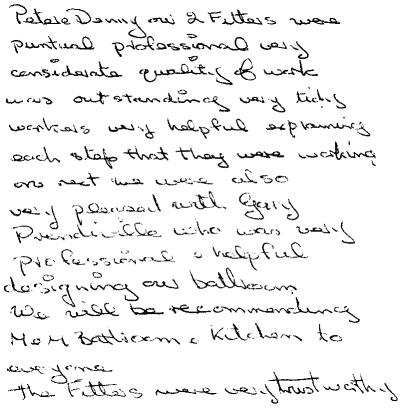 Peter & Denny our 2 Fitters were
puntual professional very
considerate quality of work
was outstanding very tidy
workers very helpful explaining
each step that they were working
on next we were also
very pleased with Gary
Prendiville who was very
professional & helpful
designing our bathroom
We will be recommending
M & M Bathroom & Kitchen to
everyone
The Fitters were very trustworthy